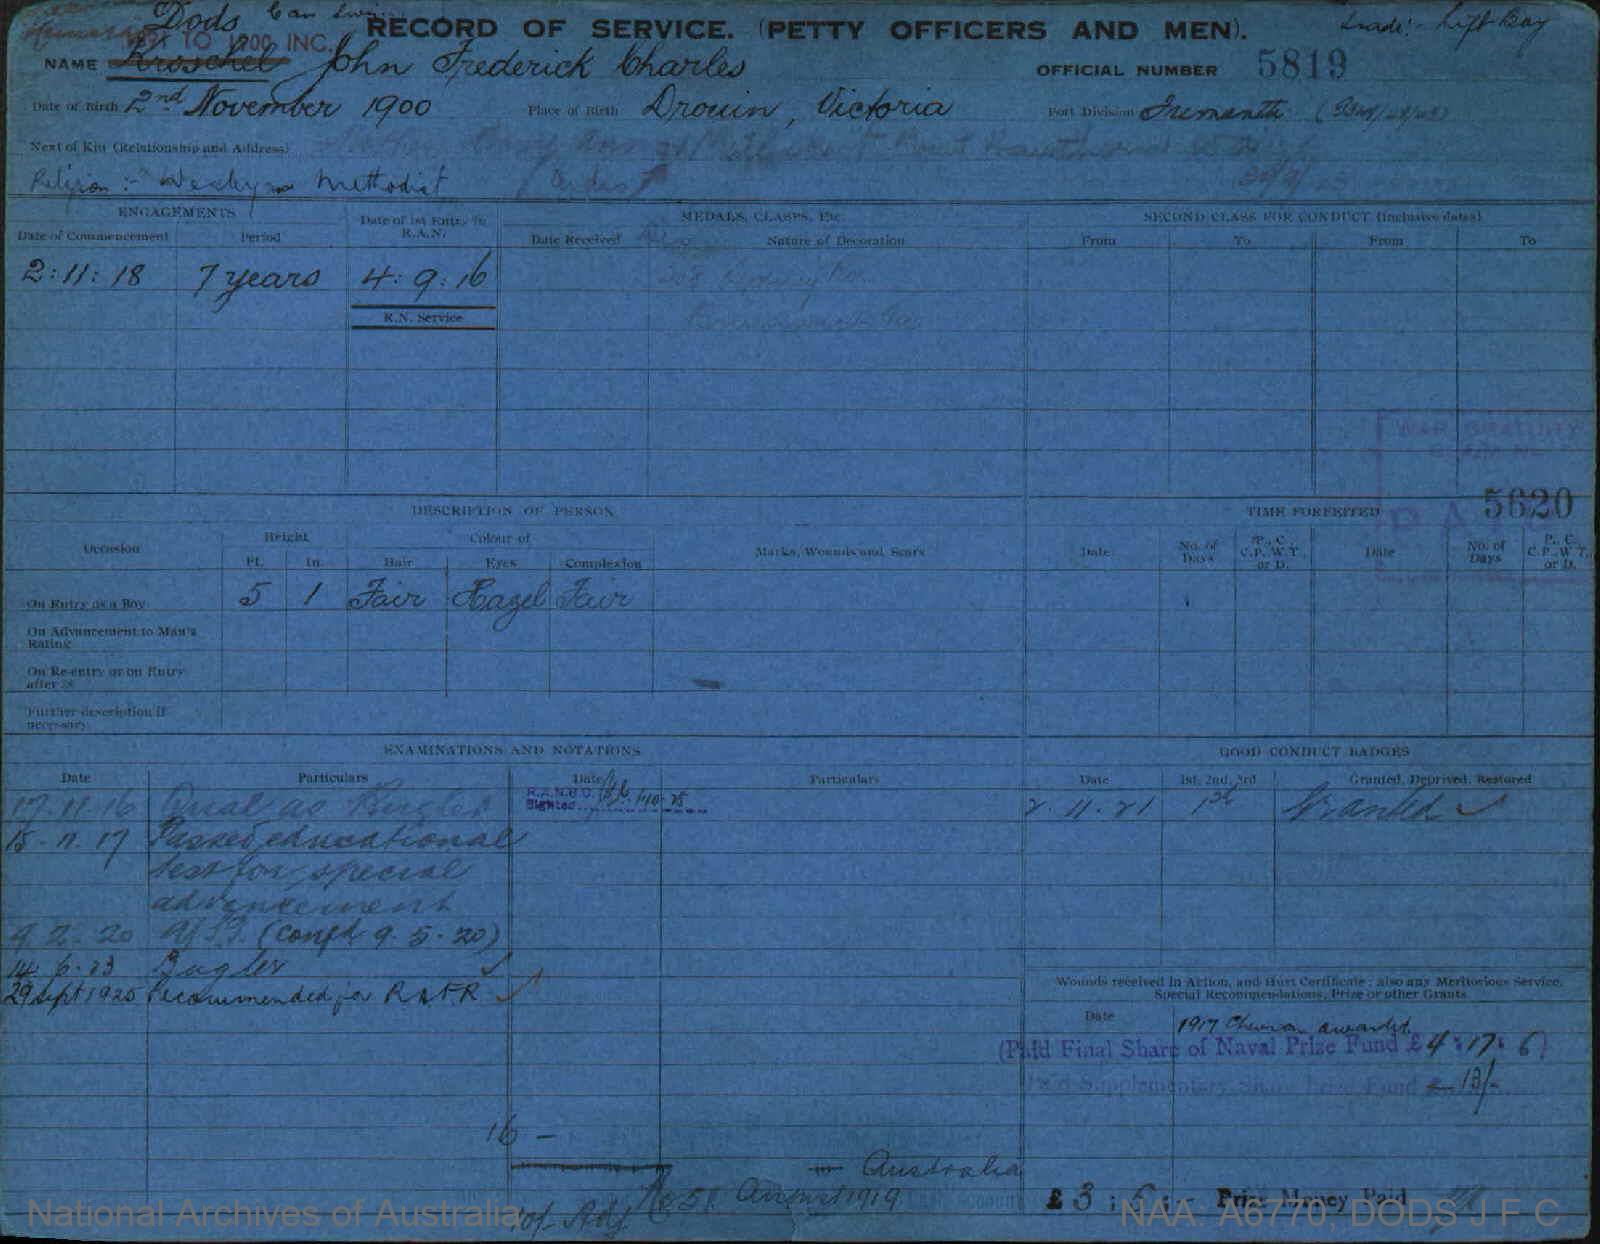 Dods
RECORD OF SERVICE. (PETTY OFFICERS AND MEN).
Trade:- Lift Boy
TO 1900 INC.
NAME Kroschel John Frederick Charles
OFFICIAL NUMBER 5819
Date of Birth 2nd November 1900
Place of Birth Drouin, Victoria
Port Division Fremantle
Next of Kin (Relationship and Address)
Religion :- Wesleyan Methodist
ENGAGEMENTS
Date of Commencement Period
Date of 1st Entry to R.A.N.
MEDALS, CLASPS, Etc.
Date Received Nature of Decoration
SECOND CLASS FOR CONDUCT (inclusive dates)
From To From To
2:11:18 7 years 4:9:16
R.N. Service
WAR GRATUITY
5620
DESCRIPTION OF PERSON
TIME FORFEITED
Occasion Height Colour of Marks, Wounds and Scars
Ft. In. Hair Eyes Complexion
Date No. of Days P., C., C.P., W.T., or D. Date No. of Days P., C., C.P., W.T., or D.
On Entry as a Boy 5 1 Fair Hazel Fair
On Advancement to Man's Rating
On Re-entry or on Entry after
Further description if necessary
EXAMINATIONS AND NOTATIONS
GOOD CONDUCT BADGES
Date Particulars Date Particulars
Date 1st, 2nd, 3rd Granted, Deprived, Restored
17.11.16 Qual as Bugler
Sighted
2.11.21 1st Granted
15.11.17 Passed educational
test for special
advancement
9.2.20 (Confd 9.5.20)
14.6.23 Bugler
29 Sept 1925 Recommended for
Wounds received in Action, and Hurt Certificate; also any Meritorious Service,
Special Recommendations, Prize or other Grants.
Date
1917 Chevron awarded
(Paid Final Share of Naval Prize Fund £4:17:6)
Paid Supplementary Share Prize Fund £ 13/-
16 -
Australia
August 1919
£3:5:- Prize Money Paid
National Archives of Australia
NAA: A6770, DODS J F C